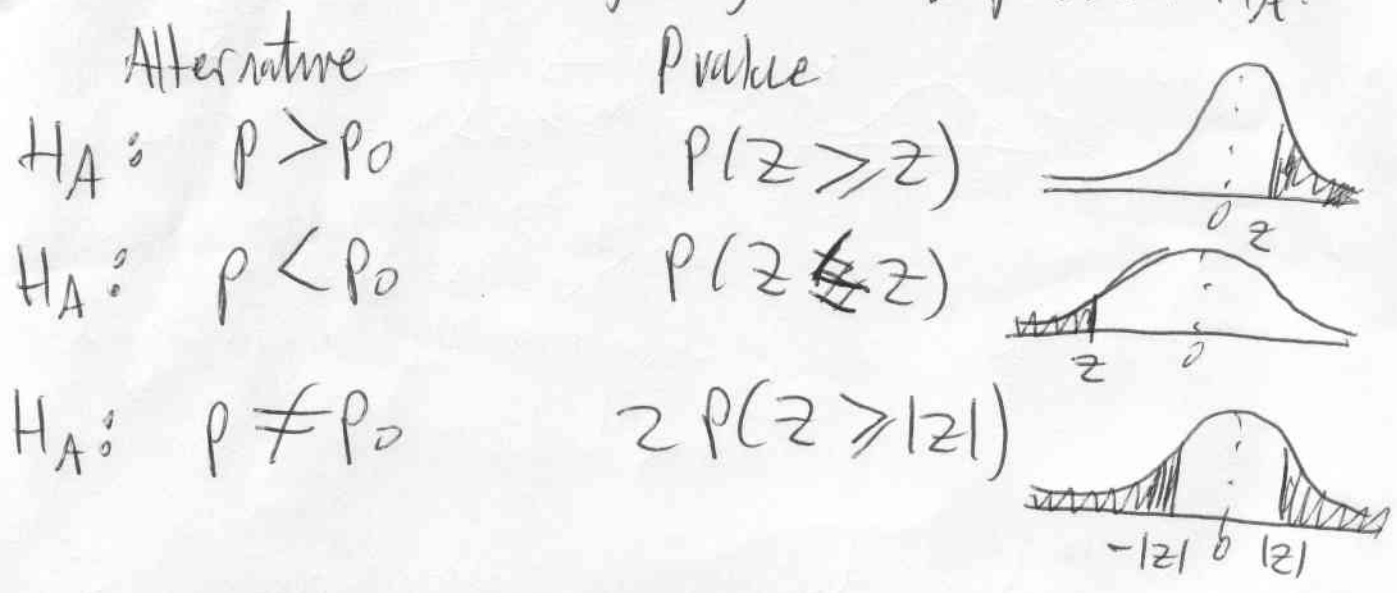 HA:
Alternative P value
HA: p > p0 P(Z ≥ z)
0 z
HA: p < p0 P(Z ≤ z)
z 0
HA: p ≠ p0 2 P(Z ≥ |z|)
-|z| 0 |z|